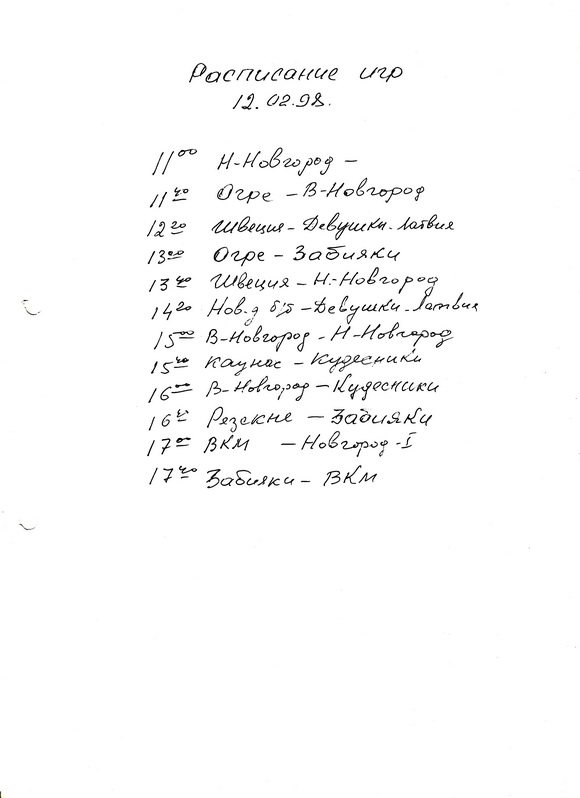 Расписание игр
12.02.98.
11⁰⁰ Н-Новгород –
11⁴⁰ Огре – В-Новгород
12²⁰ Швеция – Девушки-Латвия
13⁰⁰ Огре – Забияки
13⁴⁰ Швеция – Н-Новгород
14²⁰ Нов-д – Девушки-Латвия
15⁰⁰ В-Новгород - Н-Новгород
15⁴⁰ Каунас – Кудесники
16⁰⁰ В-Новгород – Кудесники
16⁴⁰ Резекне – Забияки
17⁰⁰ ВКМ – Новгород-I
17⁴⁰ Забияки – ВКМ